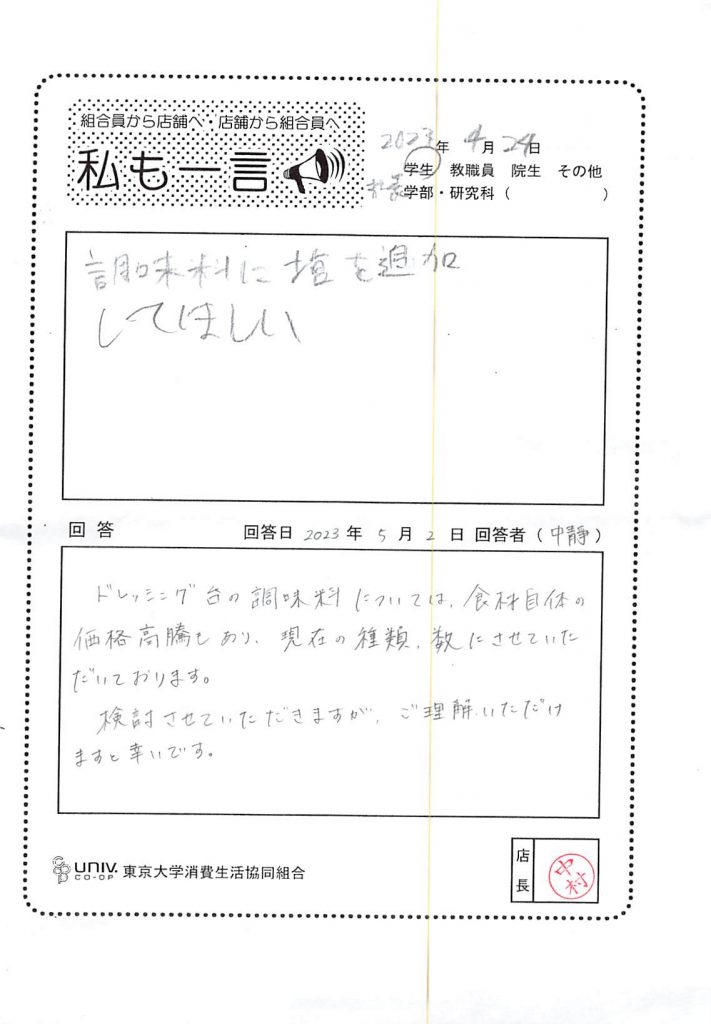 組合員から店舗へ・店舗から組合員へ
私も一言
2023年 4月 24日
学生 教職員 院生 その他
学部・研究科（　　　）
調味料に塩を追加
してほしい
回答 回答日 2023年 5月 2日 回答者（中静）
ドレッシング台の調味料については、食材自体の
価格高騰もあり、現在の種類、数にさせていた
だいております。
検討させていただきますが、ご理解いただけ
ますと幸いです。
UNIV. CO-OP 東京大学消費生活協同組合
店長
中村